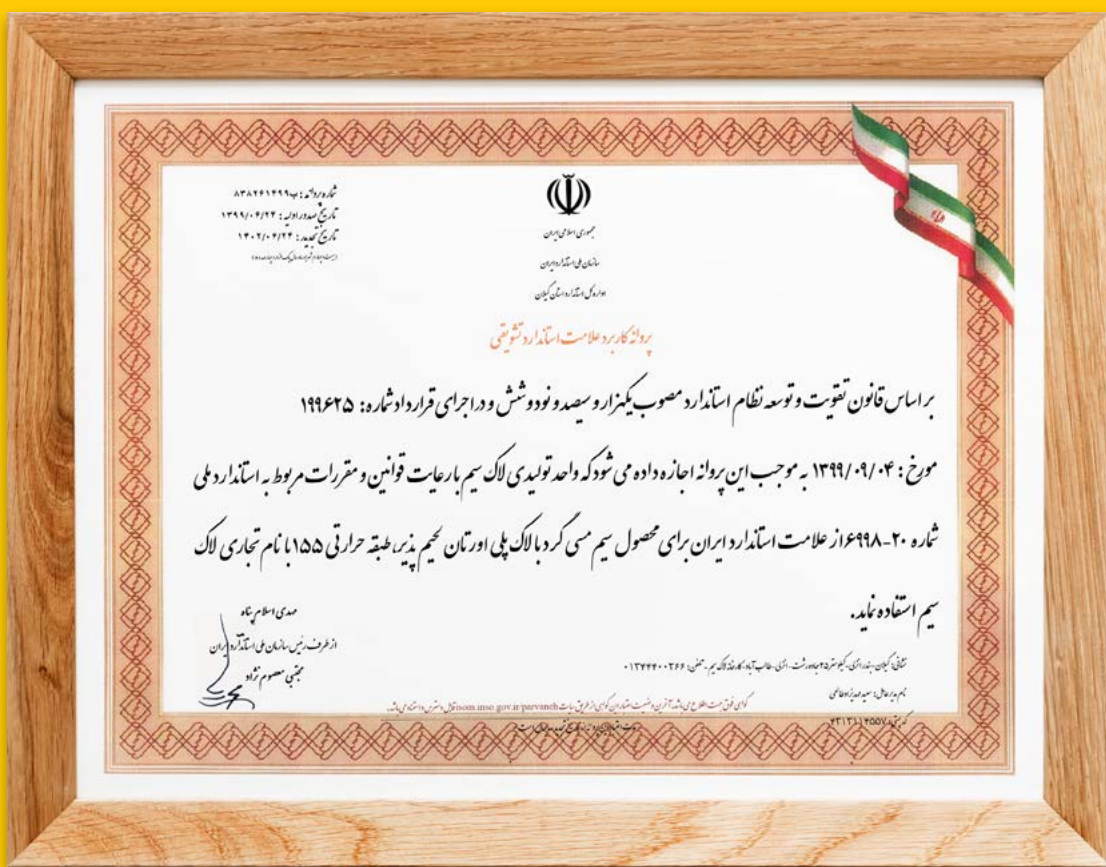 شماره پروانه: ب۸۳۸۲۶۱۴۹۹
تاریخ صدور اولیه: ۱۳۹۹/۰۶/۲۴
تاریخ تجدید: ۱۴۰۲/۰۶/۲۴
جمهوری اسلامی ایران
سازمان ملی استاندارد ایران
اداره کل استاندارد استان گیلان
پروانه کاربرد علامت استاندارد تشویقی
بر اساس قانون تقویت و توسعه نظام استاندارد مصوب یکهزار و سیصد و نود و شش و در اجرای قرارداد شماره: ۱۹۹۶۲۵
مورخ: ۱۳۹۹/۰۹/۰۴ به موجب این پروانه اجازه داده می شود که واحد تولیدی لاک سیم با رعایت قوانین و مقررات مربوط به استاندارد ملی
شماره ۲۰-۶۹۹۸ از علامت استاندارد ایران برای محصول سیم مسی گرد با لاک پلی اورتان لحیم پذیر، طبقه حرارتی ۱۵۵ با نام تجاری لاک
سیم استفاده نماید.
مهدی اسلام پناه
از طرف رئیس سازمان ملی استاندارد ایران
مجتبی معصوم نژاد
نشانی: گیلان - بندر انزلی - کیلومتر ۲۵ جاده رشت - انزلی - طالب آباد - کارخانه لاک سیم - تلفن: ۰۱۳۴۴۴۰۰۳۶۶
نام مدیرعامل: سعید
گواهی فوق جهت اطلاع می باشد، آخرین وضعیت اعتبار این گواهی از طریق سایت isom.inso.gov.ir/parvaneh قابل دسترس و استناد می باشد.
کد پستی: ۴۳۱۳۱۱۴۵۵۷
مدت اعتبار این پروانه از تاریخ تجدید سه سال است